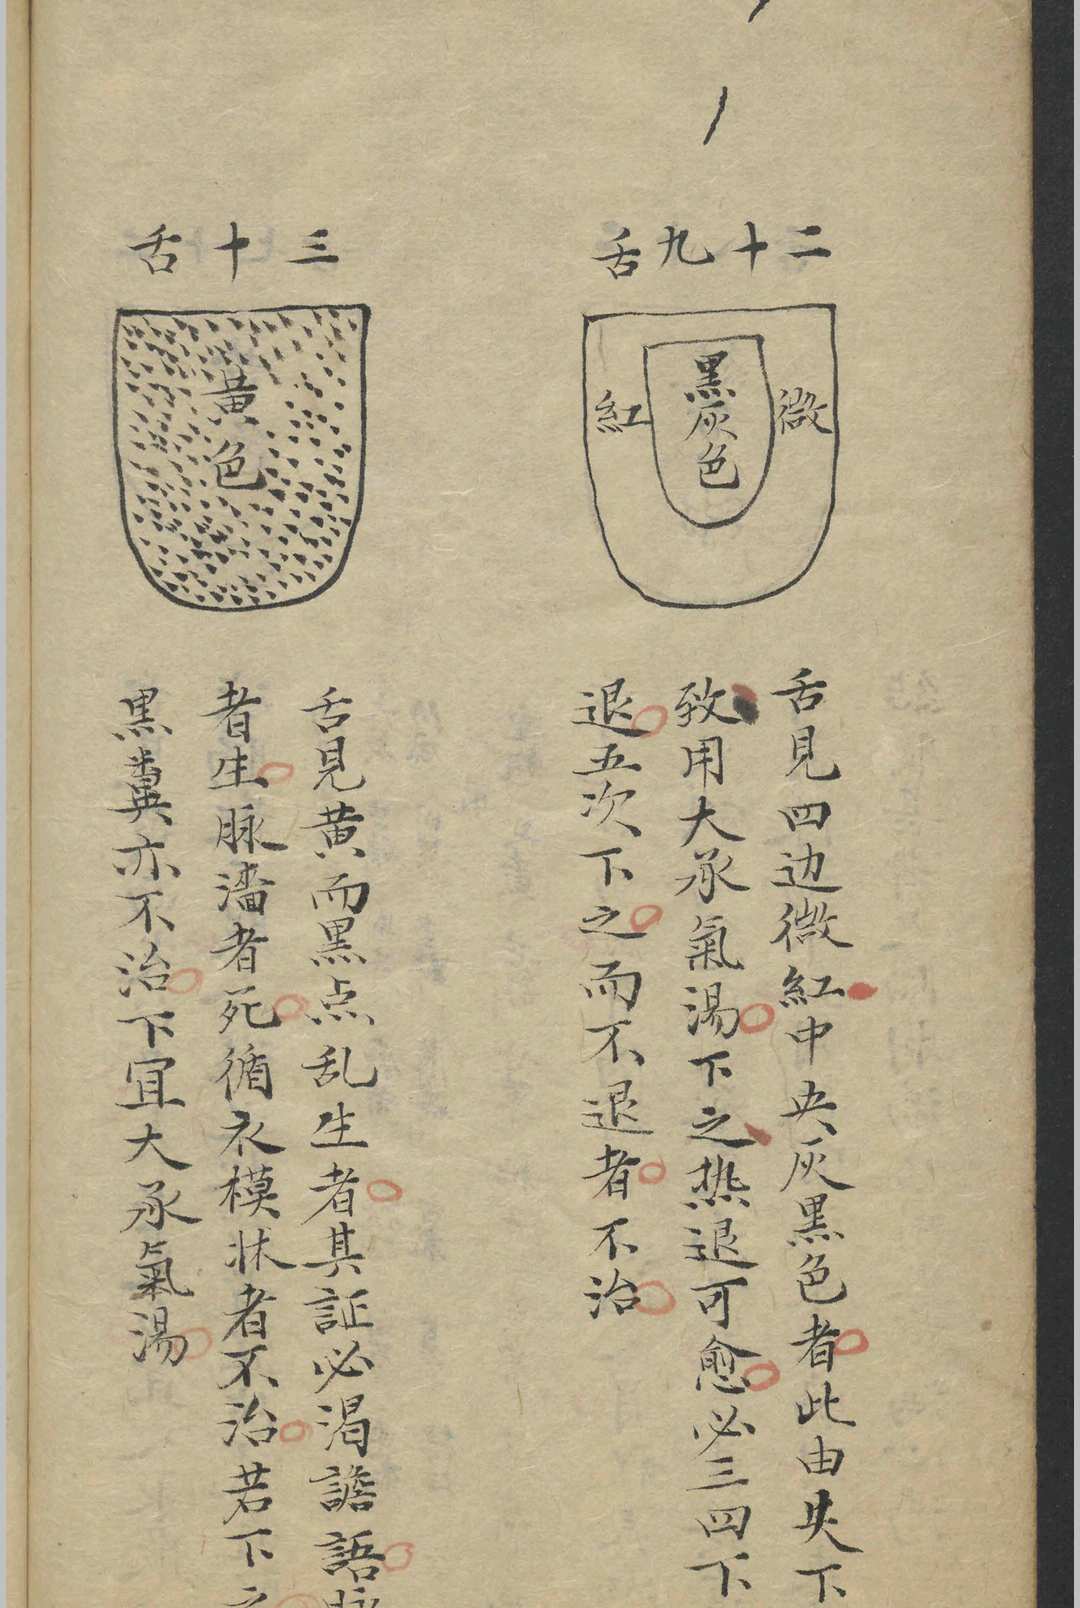 二十九舌
微
黑灰色
紅
舌見四边微紅中央灰黑色者此由失下
致用大承氣湯下之热退可愈必三四下
退五次下之而不退者不治
三十舌
黄色
舌見黄而黑点乱生者其証必渴譫語脉
者生脉濇者死循衣模牀者不治若下之
黑糞亦不治下宜大承氣湯